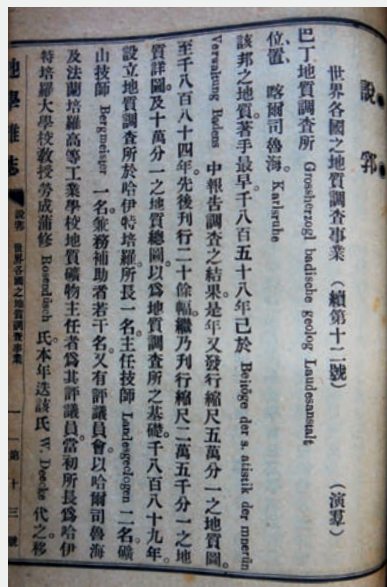 說郛
世界各國之地質調查事業 (續第十二號) (演羣)
巴丁地質調查所 Grossherzogl badische geolog Laudesanstalt
位置、喀爾司魯海。Karlsruhe
該邦之地質。著手最早。千八百五十八年已於 Beitöge der s. atistik der mnerün
Verwaltung Badens 中報告調查之結果。是年又發行縮尺五萬分一之地質圖。
至千八百八十四年。先後刊行二十餘幅。繼乃刊行縮尺二萬五千分一之地
質詳圖。及十萬分一之地質總圖。以爲地質調查所之基礎。千八百八十九年。
設立地質調查所於哈伊特培羅。所長一名。主任技師 Landesgeologen 二名。礦
山技師 Bergmeister 一名。兼務補助者若干名。又有評議員會。以哈爾司魯海
及法蘭培羅高等工業學校地質礦物主任者爲其評議員。當初所長爲哈伊
特培羅大學校教授勞成蒲修 Rosenbusch 氏。本年迭該氏 W. Deecke 代之。移
地學雜誌 說郛 世界各國之地質調查事業 一 第十三號